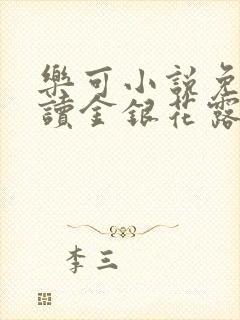 樂可小說免
讀金銀花露
李三